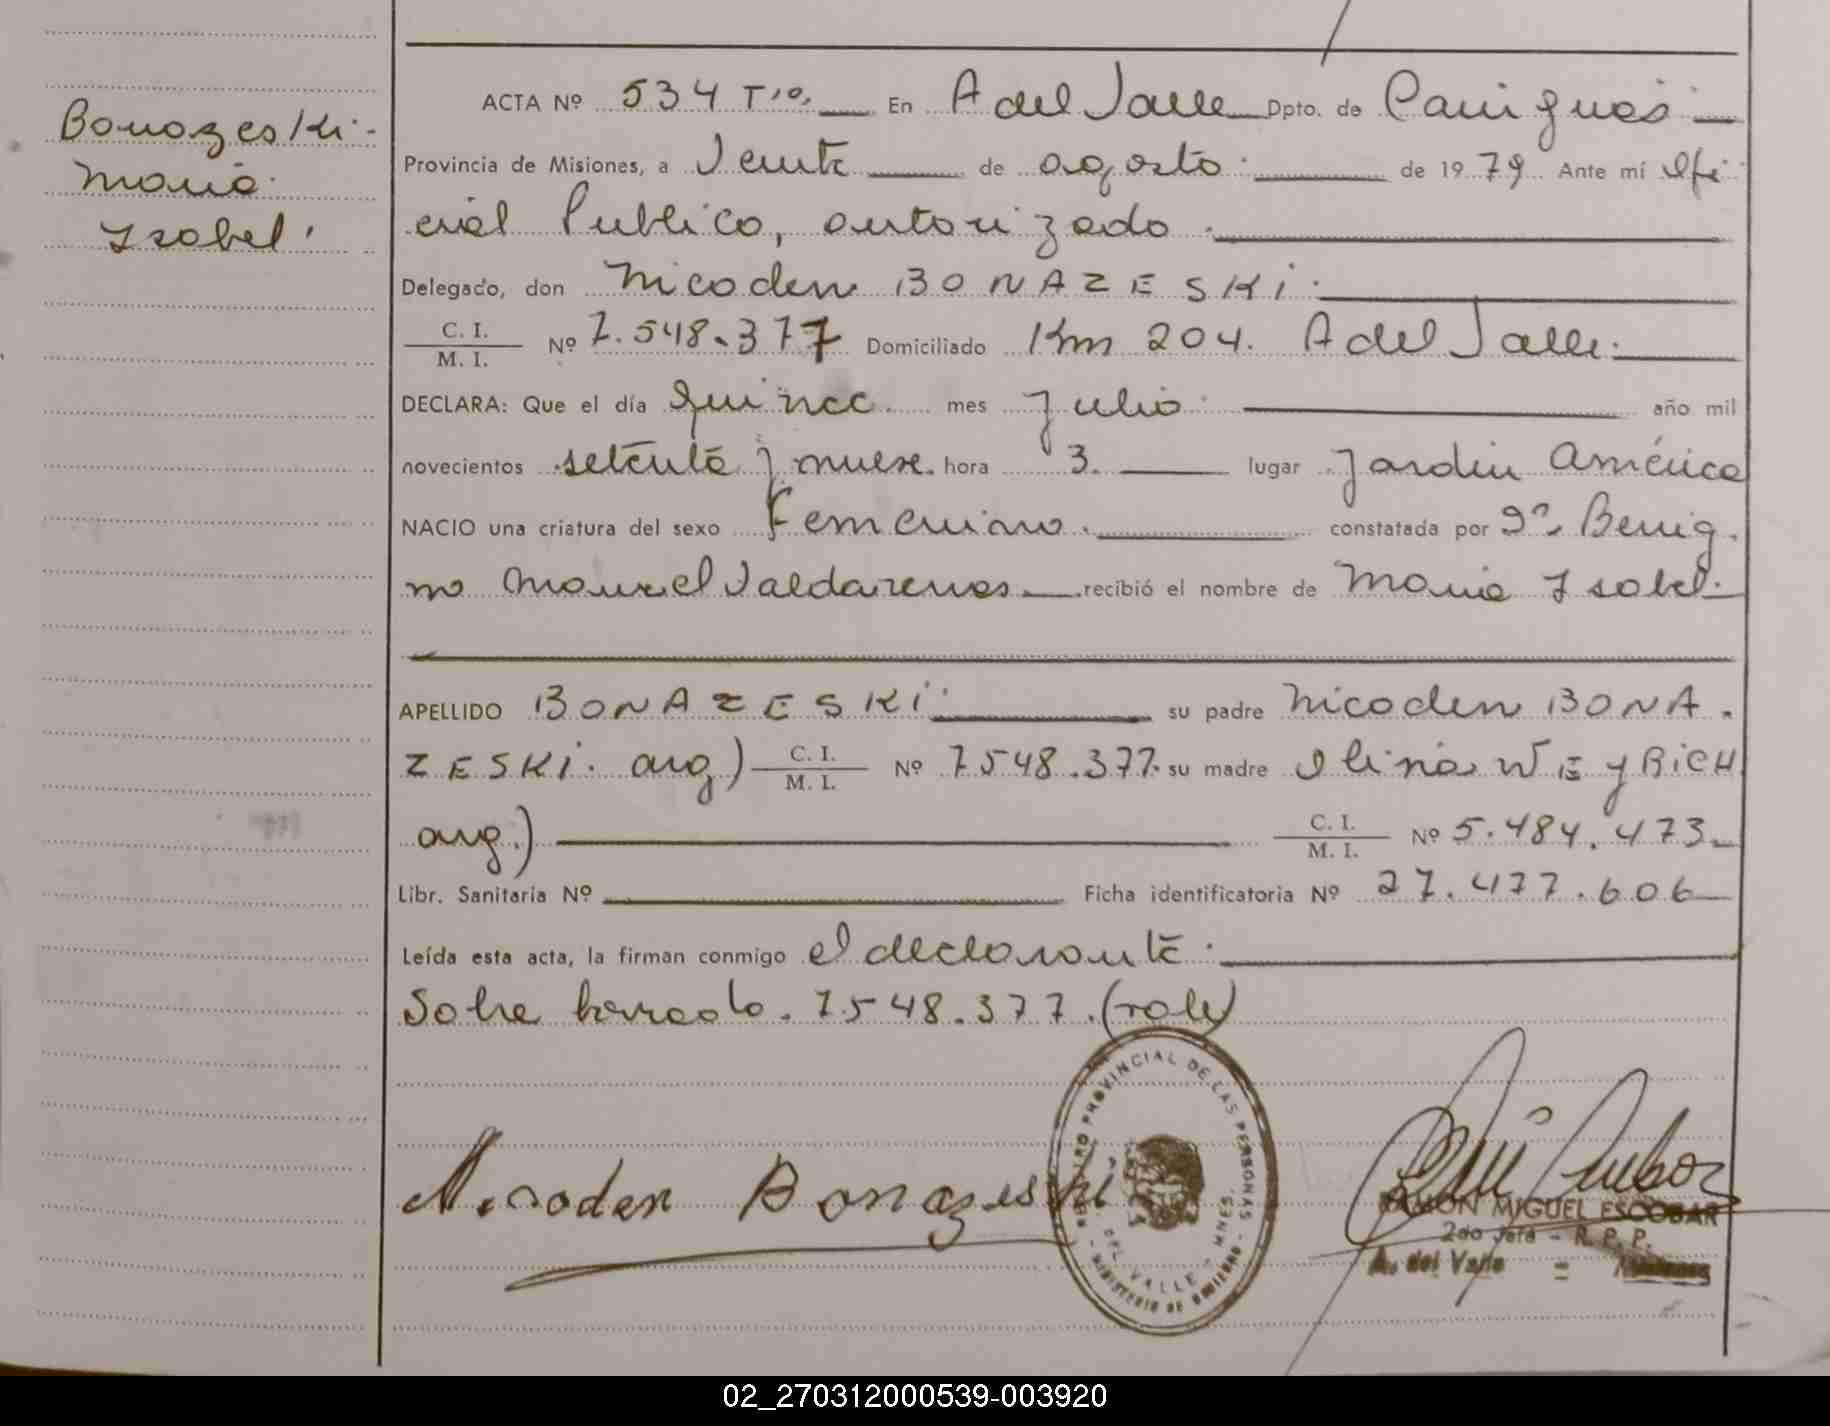 Bonazeski
Maria
Isabel
ACTA Nº 534 Tº En A del Valle Dpto. de Cainguás
Provincia de Misiones, a Veinte de agosto de 1979 Ante mí Ofi
cial Publico, autorizado
Delegado, don Nicoden BONAZESKi
C. I. / M. I. Nº 7.548.377 Domiciliado Km 204. A del Valle
DECLARA: Que el día quince mes Julio año mil
novecientos setenta y nueve hora 3. lugar Jardin América
NACIO una criatura del sexo Femenino constatada por Dr. Benig
no Manuel Valdarenas recibió el nombre de Maria Isabel
APELLIDO BONAZESKi su padre Nicoden BONA
ZESKi. arg) C. I. / M. I. Nº 7548.377. su madre Olinda WEyRiCH
arg.) C. I. / M. I. Nº 5.484.473
Libr. Sanitaria Nº Ficha identificatoria Nº 27.477.606
Leída esta acta, la firman conmigo el declarante
Sobre borrado. 7548.377. (vale)
Nicoden Bonazeski
REGISTRO PROVINCIAL DE LAS PERSONAS - MINISTERIO DE GOBIERNO
A. DEL VALLE - MNES.
RAMON MIGUEL ESCOBAR
2do Jefe - R. P. P.
A. del Valle = Misiones
02_270312000539-003920